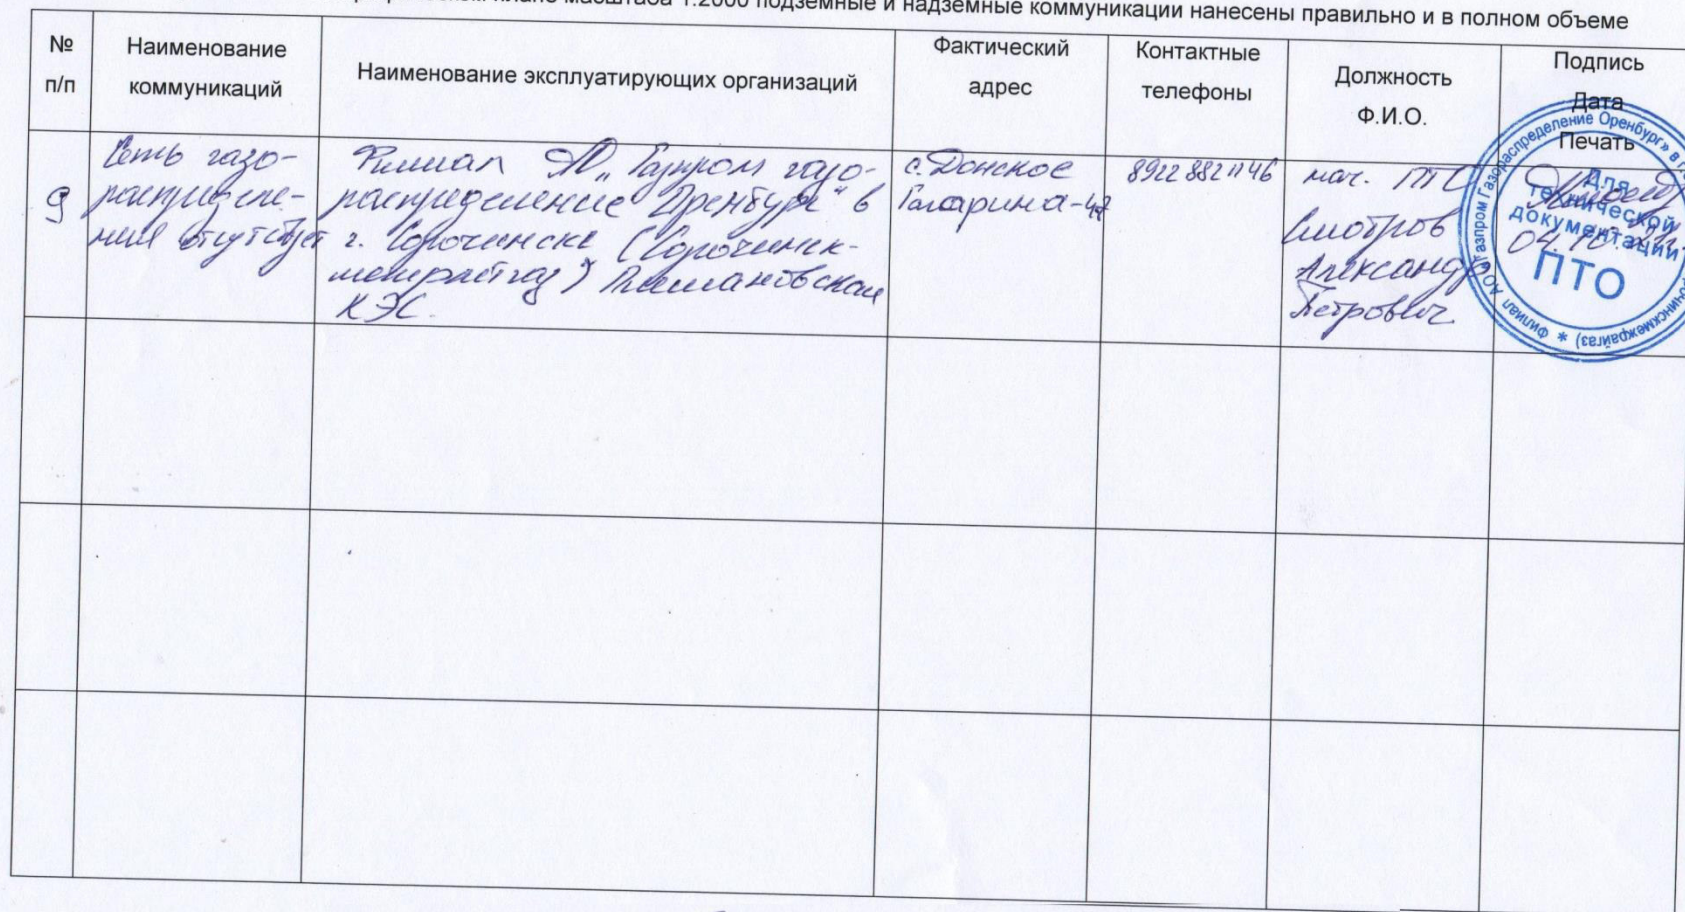 плане масштаба 1:2000 подземные и надземные коммуникации нанесены правильно и в полном объеме
№ п/п
Наименование коммуникаций
Наименование эксплуатирующих организаций
Фактический адрес
Контактные телефоны
Должность Ф.И.О.
Подпись Дата Печать
9
Сеть газо-
распределе-
ния отсутствует
Филиал АО „Газпром газо-
распределение Оренбург" в
г. Сорочинске (Сорочинск-
межрайгаз)
КЭС.
с. Донское
Гагарина-47
89228821146
нач. ПТО
Смотров
Александр
Петрович
04.10
Филиал АО «Газпром Газораспределение Оренбург» в г.
(Сорочинскмежрайгаз) *
Для
технической
документации
ПТО